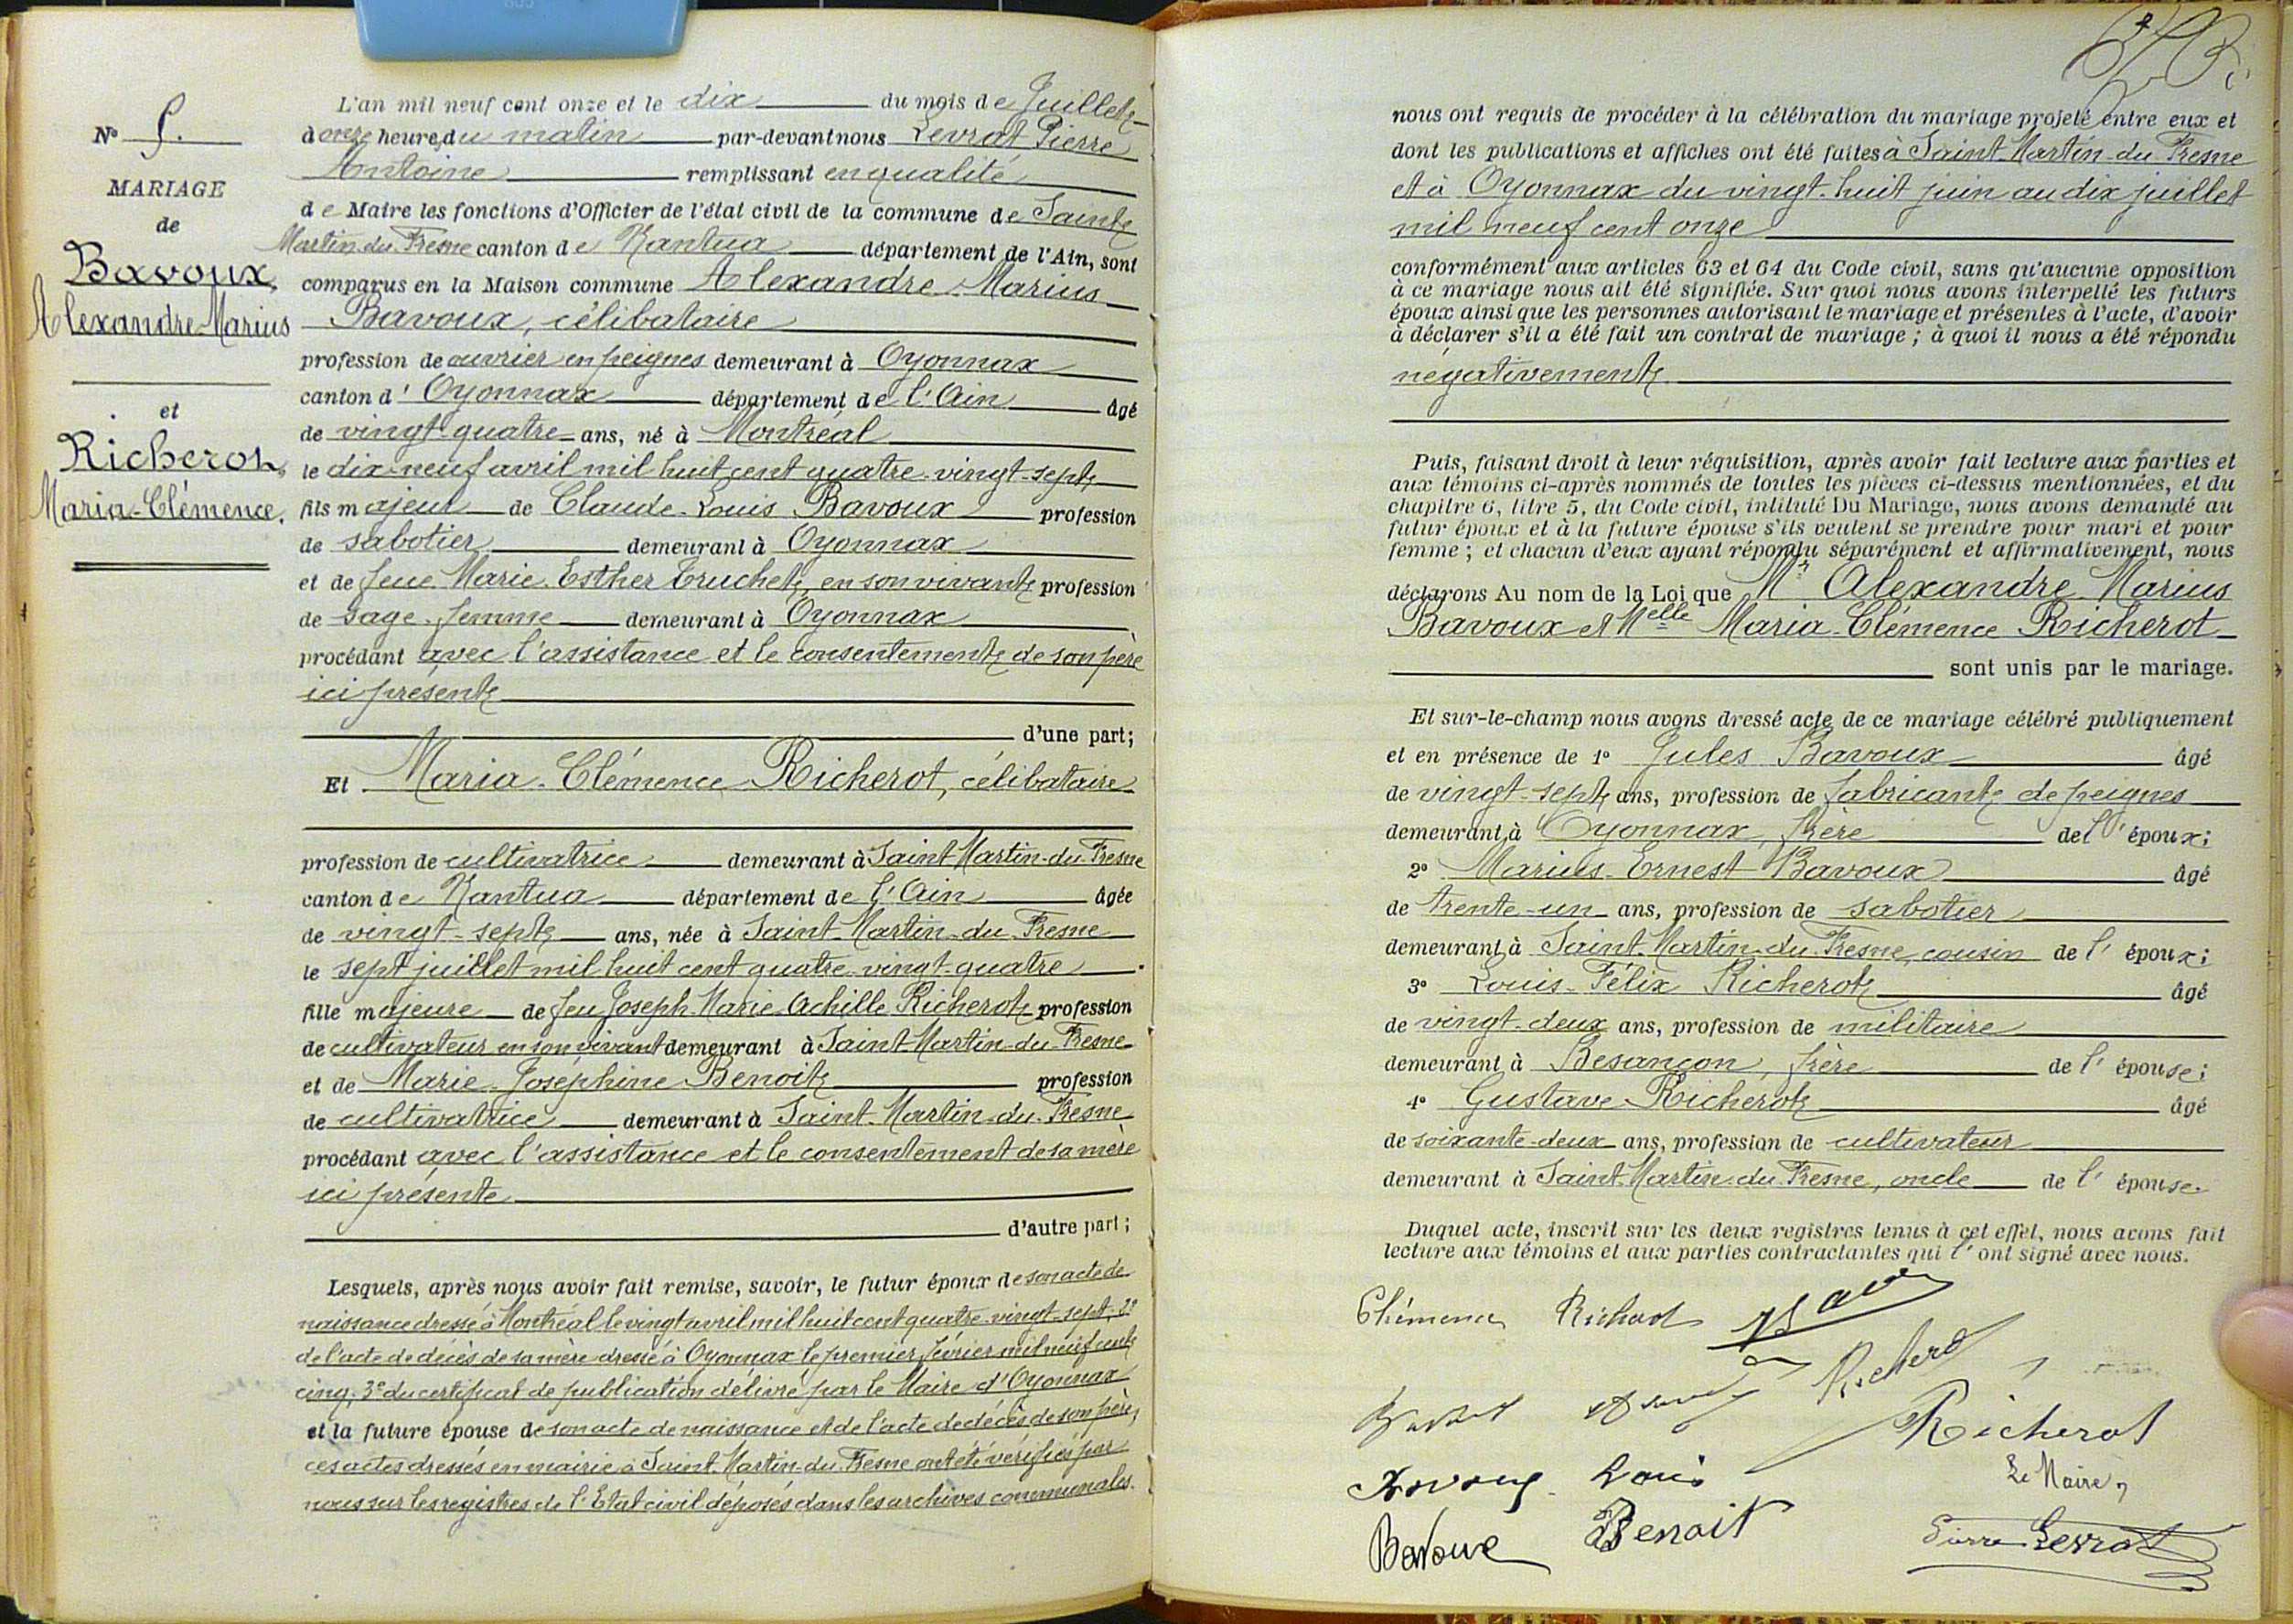 N° 5.
MARIAGE
de
Bavoux,
Alexandre-Marius
et
Richerot,
Maria-Clémence.
L'an mil neuf cent onze et le dix du mois de Juillet
à onze heures du matin par-devant nous Levrat Pierre
Antoine remplissant en qualité
de Maire les fonctions d'Officier de l'état civil de la commune de Saint
Martin-du-Fresne canton de Nantua département de l'Ain, sont
comparus en la Maison commune Alexandre-Marius
Bavoux, célibataire
profession de ouvrier en peignes demeurant à Oyonnax
canton d'Oyonnax département de l'Ain âgé
de vingt-quatre ans, né à Montréal
le dix-neuf avril mil huit cent quatre-vingt-sept
fils majeur de Claude-Louis Bavoux profession
de sabotier demeurant à Oyonnax
et de feue Marie-Esther Truchet, en son vivant profession
de sage-femme demeurant à Oyonnax
procédant avec l'assistance et le consentement de son père
ici présent
d'une part;
Et Maria-Clémence Richerot, célibataire
profession de cultivatrice demeurant à Saint-Martin-du-Fresne
canton de Nantua département de l'Ain âgée
de vingt-sept ans, née à Saint-Martin-du-Fresne
le sept juillet mil huit cent quatre-vingt-quatre
fille majeure de feu Joseph-Marie-Achille Richerot profession
de cultivateur en son vivant demeurant à Saint-Martin-du-Fresne
et de Marie-Joséphine Benoit profession
de cultivatrice demeurant à Saint-Martin-du-Fresne
procédant avec l'assistance et le consentement de sa mère
ici présente
d'autre part;
Lesquels, après nous avoir fait remise, savoir, le futur époux de son acte de
naissance dressé à Montréal le vingt avril mil huit cent quatre-vingt-sept, 2°
de l'acte de décès de sa mère dressé à Oyonnax le premier février mil neuf cent
cinq, 3° du certificat de publication délivré par le Maire d'Oyonnax
et la future épouse de son acte de naissance et de l'acte de décès de son père,
ces actes dressés en mairie à Saint-Martin-du-Fresne ont été vérifiés par
nous sur les registres de l'Etat civil déposés dans les archives communales.
nous ont requis de procéder à la célébration du mariage projeté entre eux et
dont les publications et affiches ont été faites à Saint-Martin-du-Fresne
et à Oyonnax du vingt-huit juin au dix juillet
mil neuf cent onze
conformément aux articles 63 et 64 du Code civil, sans qu'aucune opposition
à ce mariage nous ait été signifiée. Sur quoi nous avons interpellé les futurs
époux ainsi que les personnes autorisant le mariage et présentes à l'acte, d'avoir
à déclarer s'il a été fait un contrat de mariage; à quoi il nous a été répondu
négativement
Puis, faisant droit à leur réquisition, après avoir fait lecture aux parties et
aux témoins ci-après nommés de toutes les pièces ci-dessus mentionnées, et du
chapitre 6, titre 5, du Code civil, intitulé Du Mariage, nous avons demandé au
futur époux et à la future épouse s'ils veulent se prendre pour mari et pour
femme; et chacun d'eux ayant répondu séparément et affirmativement, nous
déclarons Au nom de la Loi que Mr Alexandre-Marius
Bavoux et Melle Maria-Clémence Richerot
sont unis par le mariage.
Et sur-le-champ nous avons dressé acte de ce mariage célébré publiquement
et en présence de 1° Jules Bavoux âgé
de vingt-sept ans, profession de fabricant de peignes
demeurant à Oyonnax, frère de l'époux;
2° Marius-Ernest Bavoux âgé
de trente-un ans, profession de sabotier
demeurant à Saint-Martin-du-Fresne, cousin de l'époux;
3° Louis-Félix Richerot âgé
de vingt-deux ans, profession de militaire
demeurant à Besançon, frère de l'épouse;
4° Gustave Richerot âgé
de soixante-deux ans, profession de cultivateur
demeurant à Saint-Martin-du-Fresne, oncle de l'épouse.
Duquel acte, inscrit sur les deux registres tenus à cet effet, nous avons fait
lecture aux témoins et aux parties contractantes qui l'ont signé avec nous.
Clémence Richerot
Richerot
Richerot
Louis
Le Maire,
Bavoux Benoit
Pierre Levrat